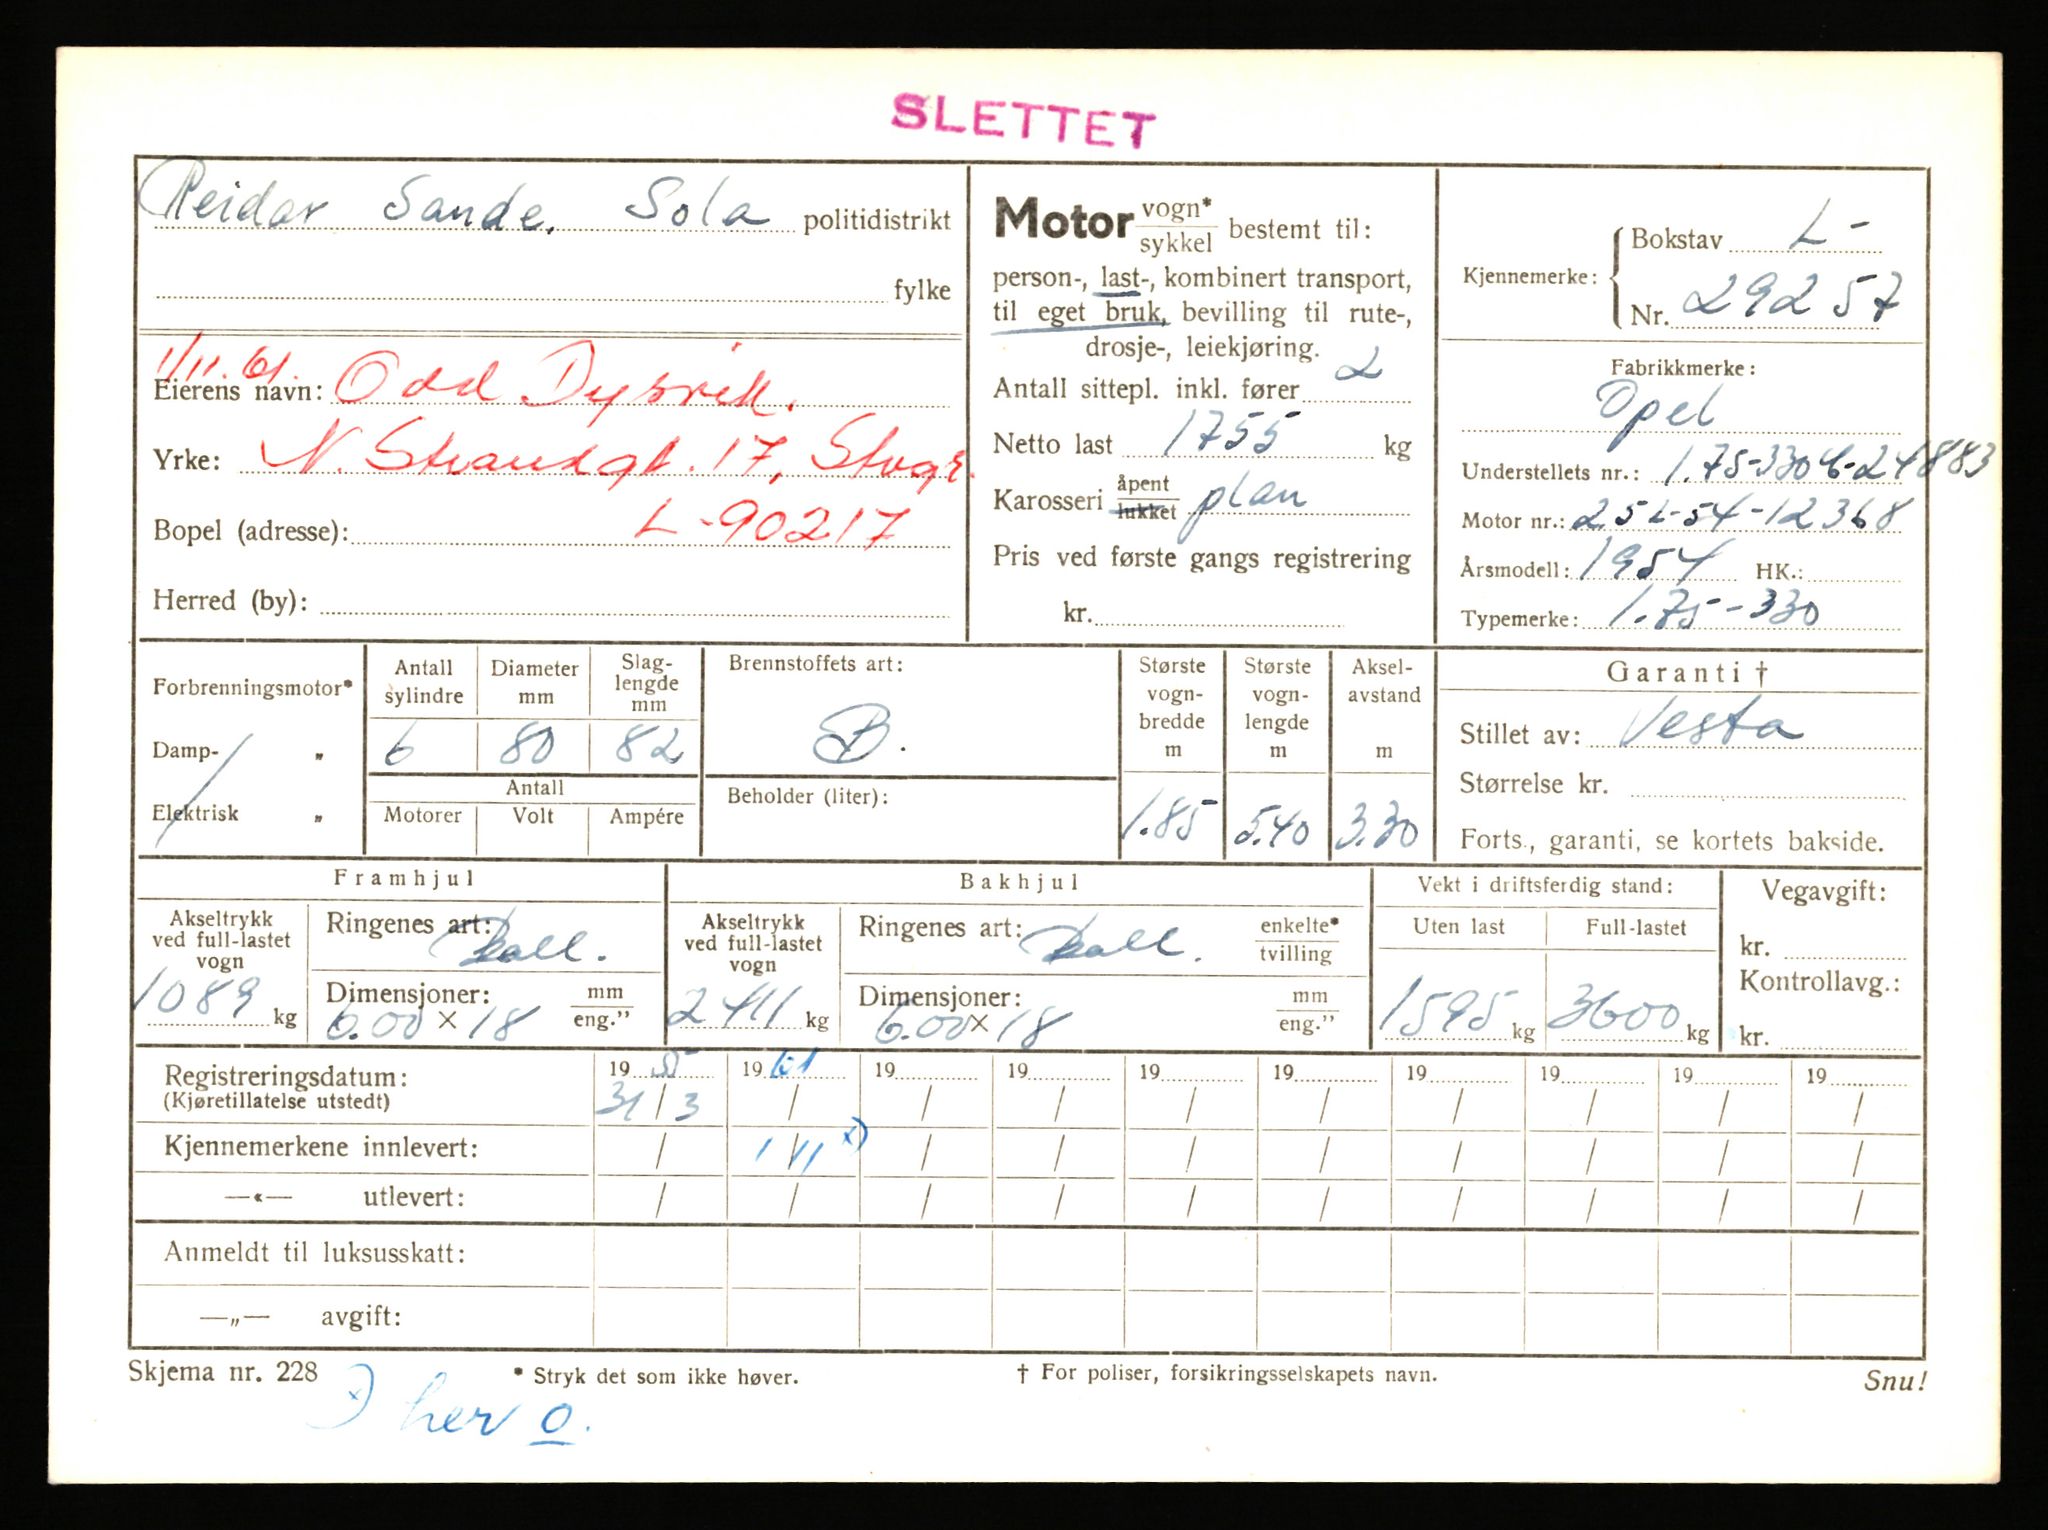 SLETTET
Reidar Sande, Sola politidistrikt
fylke
1/11.61.
Eierens navn: Odd Dysvik.
Yrke: N. Strandgt. 17, Stvgr.
Bopel (adresse): L-90217
Herred (by):
Motor vogn* sykkel bestemt til:
person-, last-, kombinert transport,
til eget bruk, bevilling til rute-,
drosje-, leiekjøring.
Antall sittepl. inkl. fører 2
Netto last 1755 kg
Karosseri åpent lukket plan
Pris ved første gangs registrering
kr.
Kjennemerke: Bokstav L-
Nr. 29257
Fabrikkmerke:
Opel
Understellets nr.: 1.75-3304-24883
Motor nr.: 25L-54-12368
Årsmodell: 1954 HK.:
Typemerke: 1.75-330
Forbrenningsmotor*
Damp- "
Elektrisk "
Antall sylindre Diameter mm Slag-lengde mm
6 80 82
Antall
Motorer Volt Ampére
Brennstoffets art:
B.
Beholder (liter):
Største vogn-bredde m Største vogn-lengde m Aksel-avstand m
1.85 5.40 3.30
Garanti †
Stillet av: Vesta
Størrelse kr.
Forts., garanti, se kortets bakside.
Framhjul
Akseltrykk ved full-lastet vogn
1089 kg
Ringenes art: Ball.
Dimensjoner: mm eng."
6.00 × 18
Bakhjul
Akseltrykk ved full-lastet vogn
2411 kg
Ringenes art: Ball. enkelte* tvilling
Dimensjoner: mm eng."
6.00 × 18
Vekt i driftsferdig stand:
Uten last Full-lastet
1595 kg 3600 kg
Vegavgift:
kr.
Kontrollavg.:
kr.
Registreringsdatum: 19 55 19 61 19 19 19 19 19 19 19 19
(Kjøretillatelse utstedt) 31/3 / / / / / / / / /
Kjennemerkene innlevert: / 1/11 x) / / / / / / / /
—«— utlevert: / / / / / / / / / /
Anmeldt til luksusskatt:
—„— avgift:
Skjema nr. 228 * Stryk det som ikke høver. † For poliser, forsikringsselskapets navn. Snu!
x) her o.